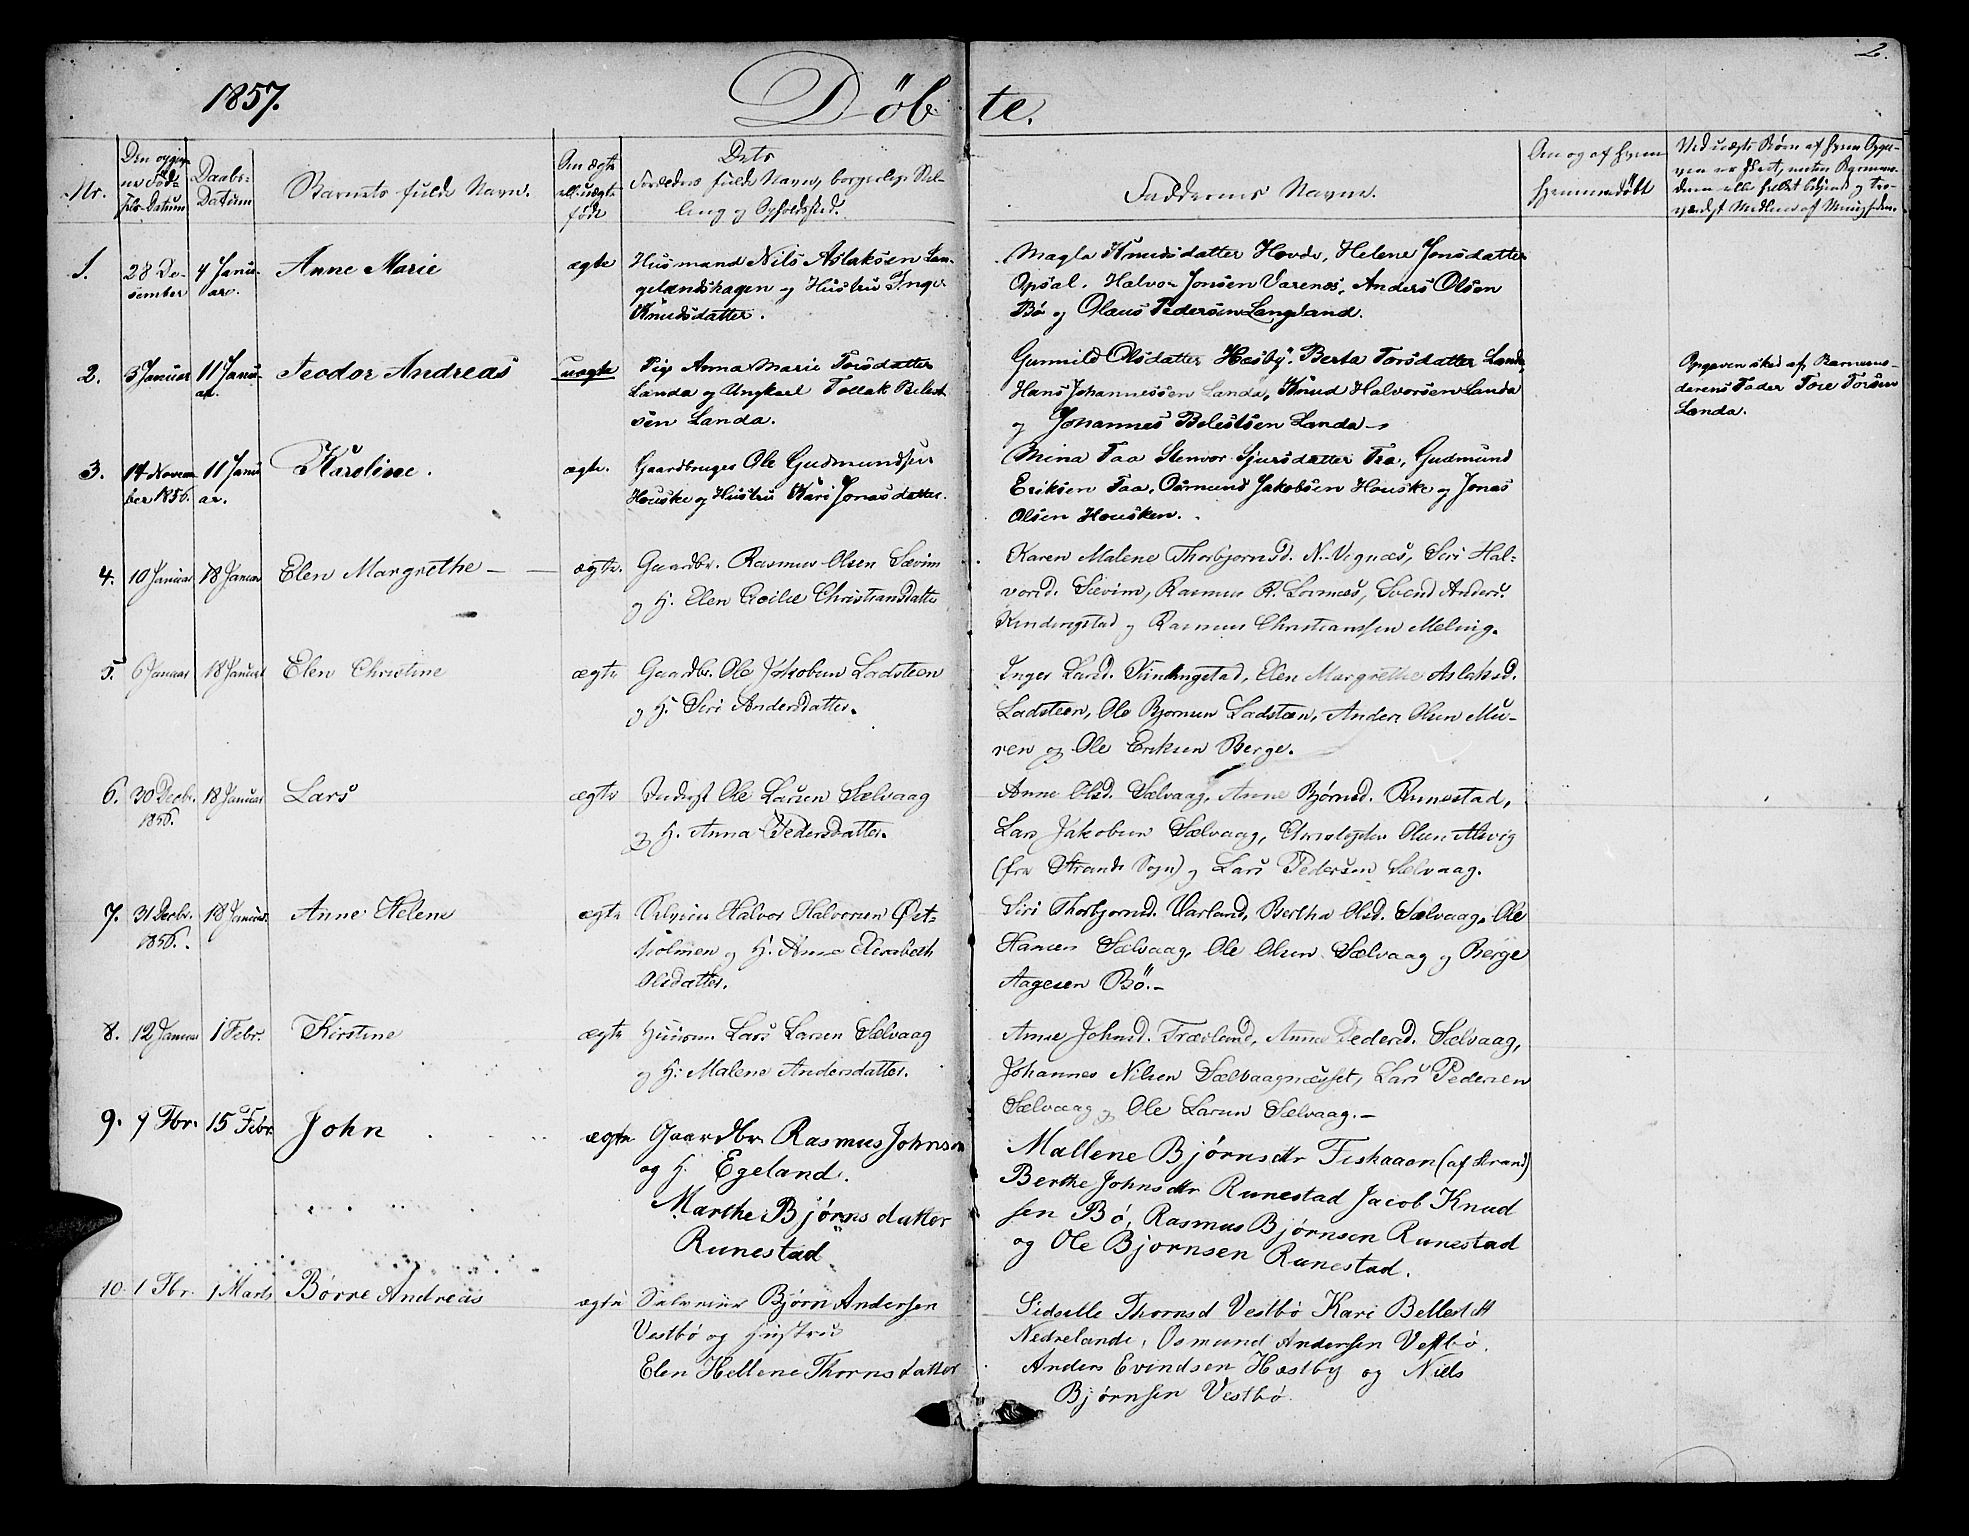 2.
1857. Döbte.
Nr.
Den opgivne Föd-sels-Datum
Daabs-Datum
Barnets fulde Navn.
Om ægte ell. uægte født
Dets Forældres fulde Navn, borgerlige Stilling og Opholdssted.
Faddernes Navne.
Om og af hvem hjemmedøbt
Ved uægte Børn af hvem Opgiven er skeet,
1. 28 December 4 Januar. Anne Marie ægte
Husmand Nils Aslaksen Lan-
gelandshagen og Hustru Inger
Knudsdatter.
Magla Knudsdatter Hovde, Helene Jonsdatter
Opsal. Halvor Jonsen Varenes, Anders Olsen
Bö og Olaus Pedersen Langeland.
2. 3 Januar 11 Januar. Teodor Andreas uægte
Pige Anna Marie Torsdatter
Landa og Ungkarl Tollak Belest
sen Landa.
Gunnild Olsdatter Hæsby. Berta Torsdatter Landa
Hans Johannessen Landa, Knud Halvorsen Landa
og Johannes Belestsen Landa
Opgaven sked af Barnemo-
derens Fader Tore Torsen
Landa.
3. 14 November 1856. 11 Januar. Karoline. ægte.
Gaardbruger Ole Gudmundsen
Houske og Hustru Kari Jonasdatter.
Mina Faa Stenvor Sjursdatter Fra, Gudmund
Eriksen Faa, Osmund Jakobsen Houske og Jonas
Olsen Housken.
4. 10 Januar 18 Januar Elen Margrethe ægte.
Gaardbr. Rasmus Olsen Sævim
og H. Elen Cecilie Christiansdatter
Karen Malene Thorbjornsd. N. Vignæs, Siri Hal-
vorsd. Sævim, Rasmus R. Lovnæs, Svend Anders.
Kindingstad og Rasmus Christianssen Meling.
5. 6 Januar 18 Januar Elen Christine ægte
Gaardbr. Ole Jakobsen Ladsteen
og H. Siri Andersdatter.
Inger Larsd. Kindingstad, Elen Margrethe Aslaksd.
Ladsteen, Ole Bjornsen Ladstæn, Anders Olsen Mu-
ren og Ole Eriksen Berge.
6. 30 Decbr. 1856. 18 Januar Lars ægte
Inderst Ole Larsen Sælvaag
og H. Anna Pedersdatter.
Anne Olsd. Sælvaag, Anne Bjørnsd. Runestad,
Lars Jakobsen Sælvaag, Christopher Olsen Alsvig
(fra Strands Sogn) og Lars Pedersen Sælvaag.
7. 31 Decbr. 1856. 18 Januar Anne Helene ægte
Selveier Halvor Halvorsen Øst-
holmen og H. Anna Elisabeth
Olsdatter.
Siri Thorbjornsd. Varland, Bertha Olsd. Sælvaag, Ole
Hansen Sælvaag, Ole Olsen Sælvaag og Børge
Aagesen Bö.-
8. 12 Januar 1 Febr. Kirstine ægte
Husm. Lars Larsen Sælvaag
og H. Malene Andersdatter.
Anne Johnsd. Trævland, Anna Pedersd. Sælvaag,
Johannes Nilsen Sælvaagnæsset, Lars Pedersen
Sælvaag og Ole Larsen Sælvaag.-
9. 7 Fbr. 15 Febr. John ægte
Gaardbr. Rasmus Johnsen
og H. Egeland.
Marthe Bjørnsdatter
Runestad
Mallene Bjørnsdtr Fiskaaen (af Strand)
Berthe Johnsdtr Runestad Jacob Knud
sen Bø, Rasmus Bjørnsen Runestad
og Ole Bjørnsen Runestad.
10. 1 Fbr. 1 Marts Børre Andreas ægte
Selveier Bjørn Andersen
Vestbø og Hustru
Elen Hellene Thornsdatter
Sidselle Thornsd Vestbø Kari Bellestdtr
Nedrelande, Osmund Andersen Vestbø.
Anders Evindsen Hæstby og Niels
Bjørnsen Vestbø.